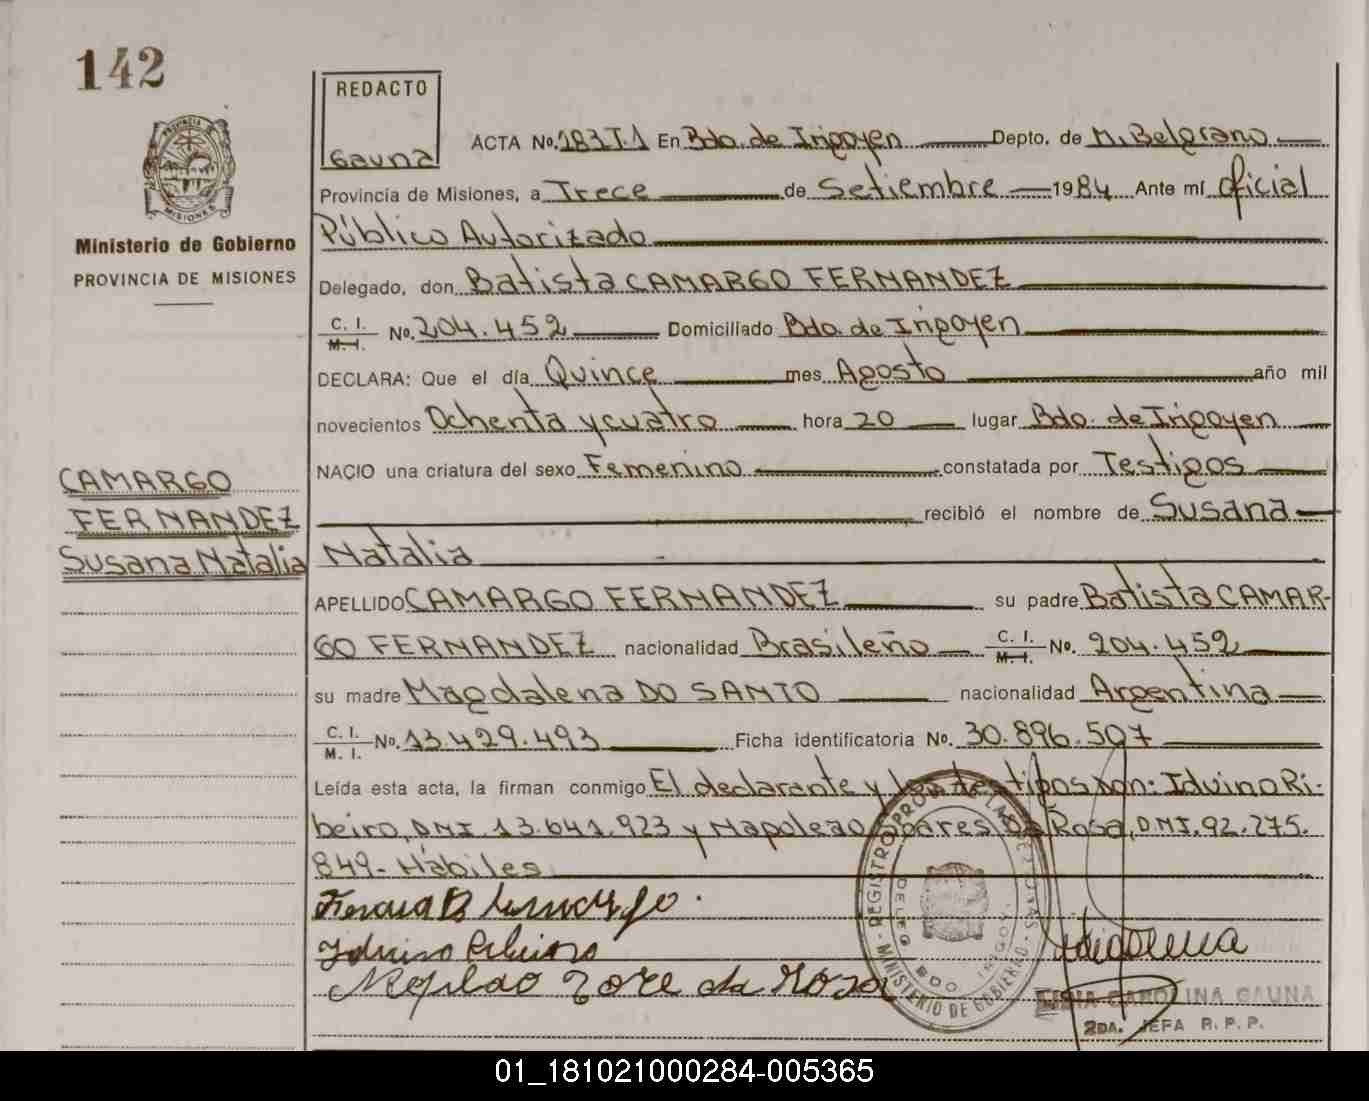 142
REDACTO
Gauna
ACTA No. 183T.1 En Bdo. de Irigoyen Depto. de M. Belgrano
Provincia de Misiones, a Trece de Setiembre 1984 Ante mí oficial
Público Autorizado
Delegado, don Batista CAMARGO FERNANDEZ
C. I. M. I. No. 204.452 Domiciliado Bdo. de Irigoyen
DECLARA: Que el día Quince mes Agosto año mil
novecientos Ochenta y cuatro hora 20 lugar Bdo. de Irigoyen
NACIO una criatura del sexo Femenino constatada por Testigos
recibió el nombre de Susana
Natalia
APELLIDO CAMARGO FERNANDEZ su padre Batista CAMAR-
GO FERNANDEZ nacionalidad Brasileño C. I. M. I. No. 204.452
su madre Magdalena DO SANTO nacionalidad Argentina
C. I. M. I. No. 13.429.493 Ficha identificatoria No. 30.896.507
Leída esta acta, la firman conmigo El declarante y los testigos don: Iduino Ri-
beiro, DNI. 13.641.923 y Napoleao Soares Da Rosa, DNI. 92.275.
849- Hábiles
Iduino Ribeiro
da Rosa
PROVINCIA DE
MISIONES
Ministerio de Gobierno
PROVINCIA DE MISIONES
CAMARGO
FERNANDEZ
Susana Natalia
REGISTRO PROV. DE LAS PERSONAS
MINISTERIO DE GOBIERNO
DELEG
BDO IRIGOY.
CAROLINA GAUNA
2DA. JEFA R. P. P.
01_181021000284-005365